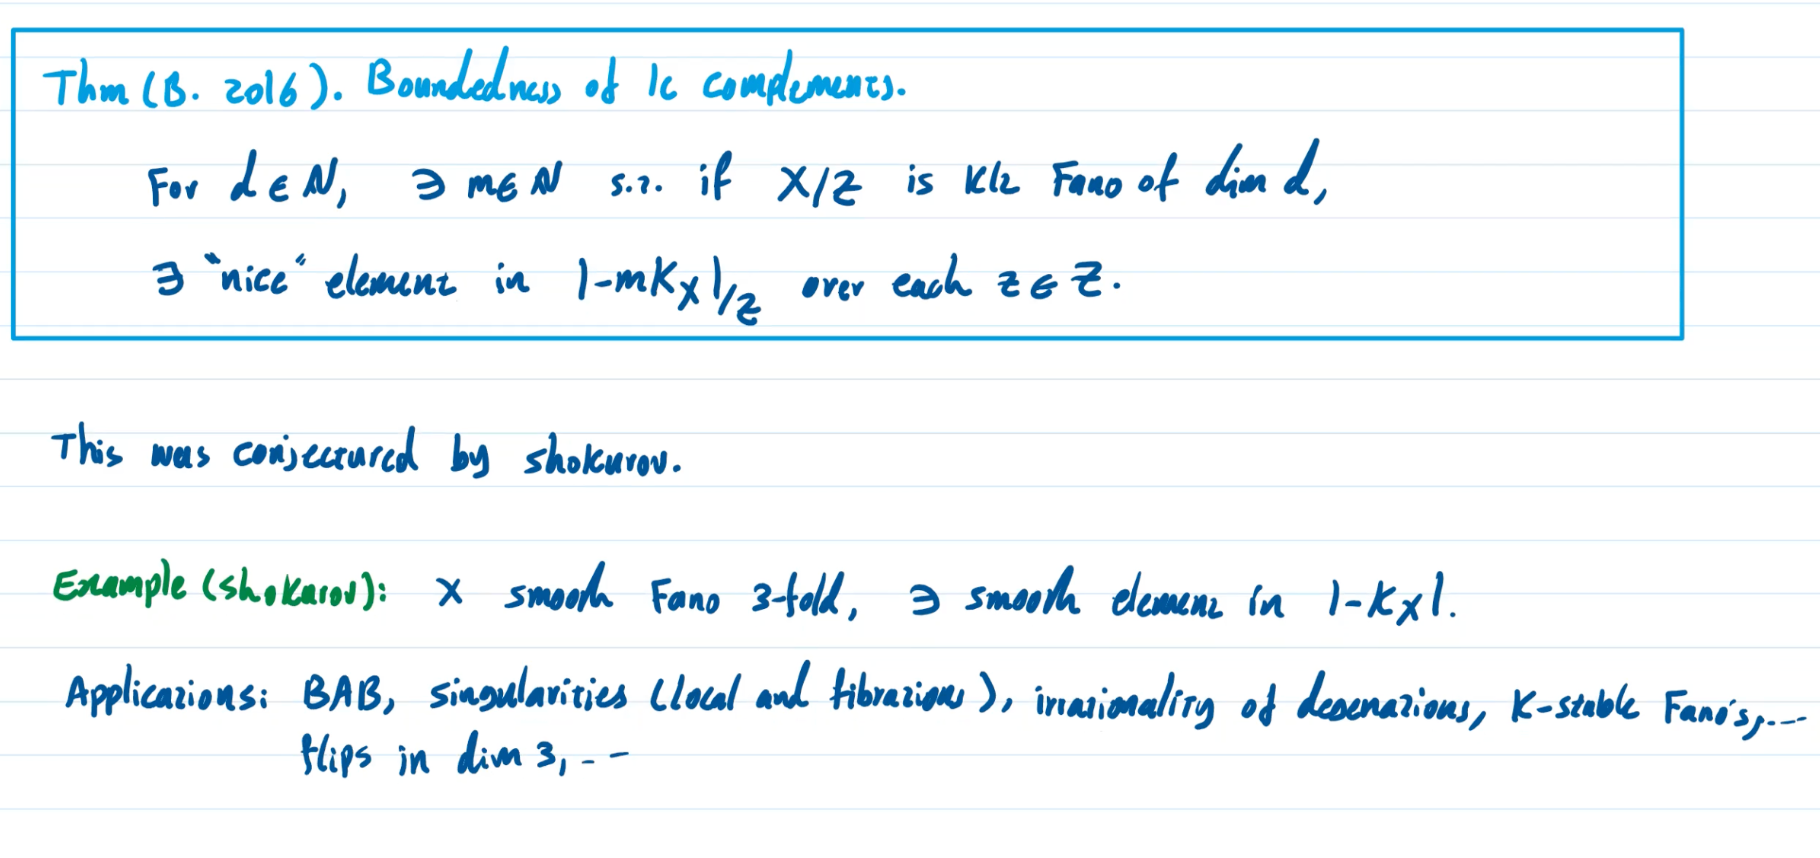 Thm (B. 2016). Boundedness of lc complements.
For d ∈ ℕ, ∃ m ∈ ℕ s.t. if X/Z is klt Fano of dim d,
∃ "nice" element in |-mK_X|_{/Z} over each z ∈ Z.
This was conjectured by Shokurov.
Example (Shokurov): X smooth Fano 3-fold, ∃ smooth element in |-K_X|.
Applications: BAB, singularities (local and fibrations), irrationality of degenations, K-stable Fano's,...
flips in dim 3, ...